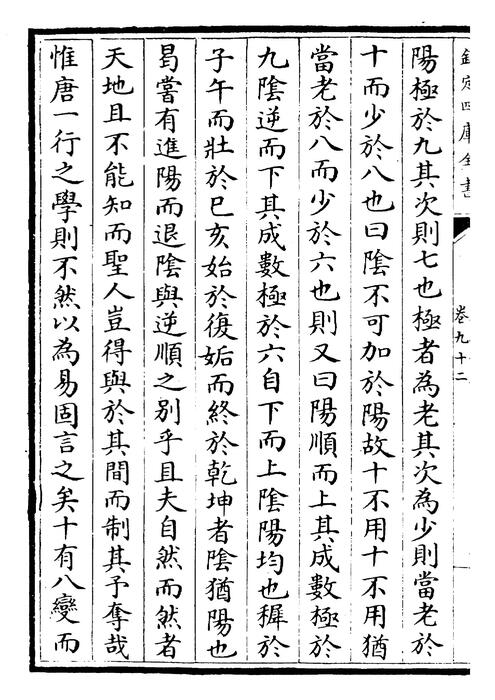 欽定四庫全書
卷九十二
陽極於九其次則七也極者為老其次為少則當老於
十而少於八也曰陰不可加於陽故十不用十不用猶
當老於八而少於六也則又曰陽順而上其成數極於
九陰逆而下其成數極於六自下而上陰陽均也穉於
子午而壯於巳亥始於復姤而終於乾坤者陰猶陽也
曷嘗有進陽而退陰與逆順之别乎且夫自然而然者
天地且不能知而聖人豈得與於其間而制其予奪哉
惟唐一行之學則不然以為易固言之矣十有八變而